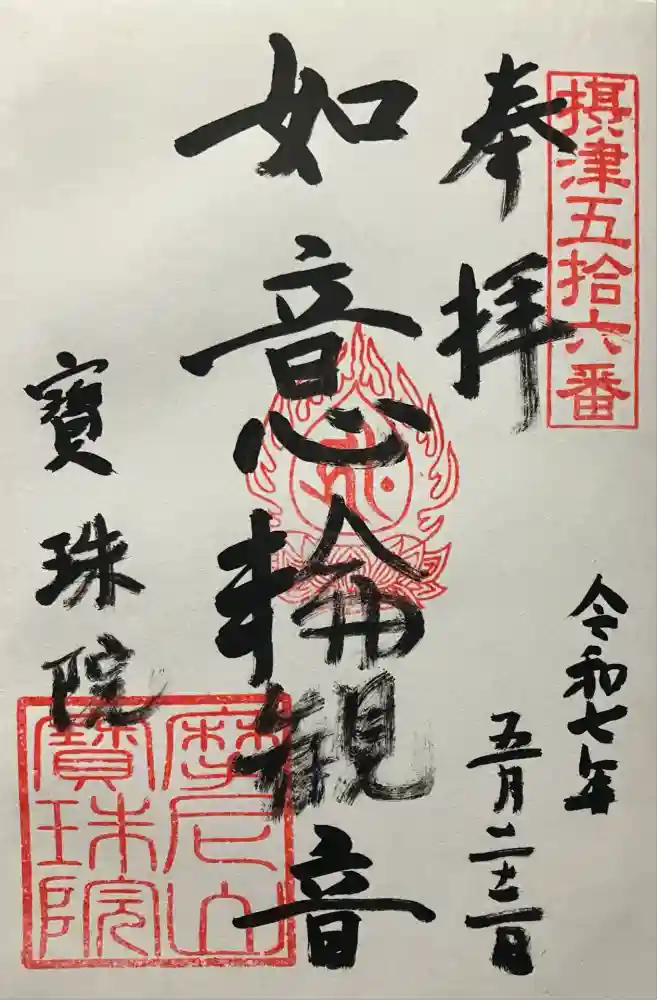 摂津五拾六番
奉拝
令和七年
五月二十三日
如意輪観音
寶珠院
摩尼山
寶珠院